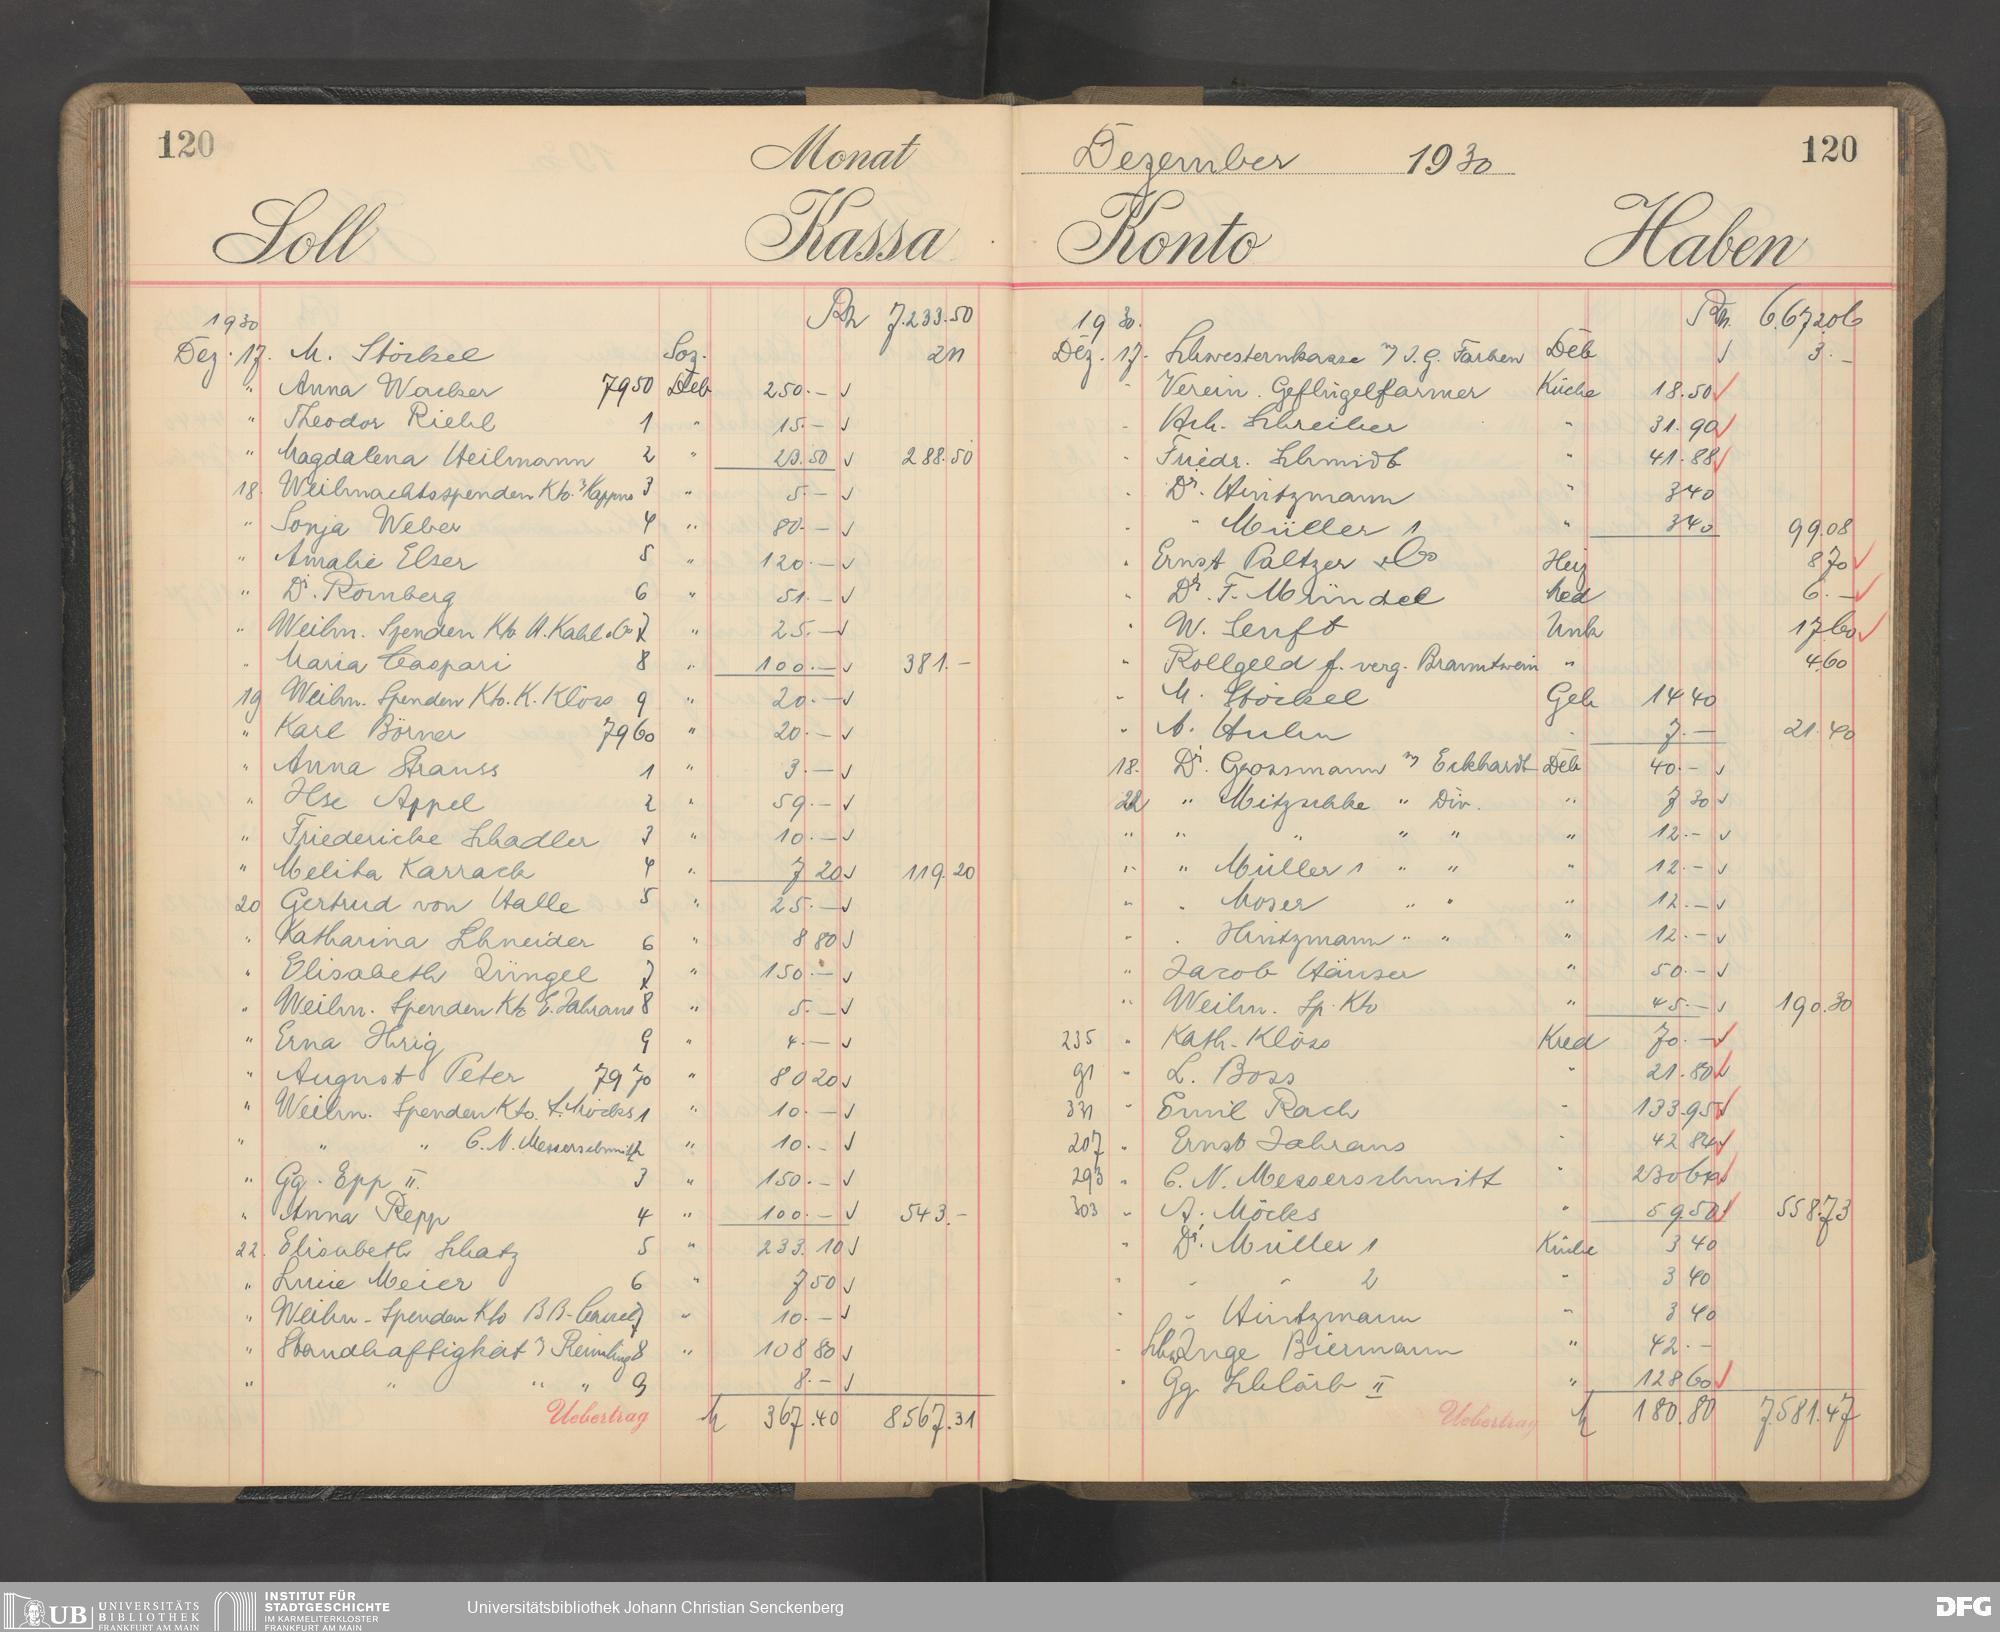 120
Monat
Soll
Kassa
1930
Rm 7.233.50
Dez. 17. M. Stöckel Soz. 2 11
" Anna Wacker 7950 Deb 250.–
" Theodor Riehl 1 " 15.–
" Magdalena Heilmann 2 " 23.50 288.50
18. Weihnachtsspenden Kto. 3 " 5.–
" Sonja Weber 4 " 80.–
" Amalie Elser 5 " 120.–
" Dr. Romberg 6 " 51.–
" Weihn. Spenden Kto A. Kahl & Co 7 " 25.–
" Maria Caspari 8 " 100.– 381.–
19 Weihn. Spenden Kto. K. Klöss 9 " 20.–
" Karl Börner 7960 " 20.–
" Anna Strauss 1 " 3.–
" Ilse Appel 2 " 59.–
" Friedericke Schadler 3 " 10.–
" Melita Karrach 4 " 7 20 119.20
20 Gertrud von Halle 5 " 25.–
" Katharina Schneider 6 " 8 80
" Elisabeth Züngel 7 " 150.–
" Weihn. Spenden Kto E. Jahraus 8 " 5.–
" Erna Ihrig 9 " 4.–
" August Peter 7970 " 80 20
" Weihn. Spenden Kto. A. Möcks 1 " 10.–
" " " C. N. Messerschmitt 2 " 10.–
" Gg. Epp II. 3 " 150.–
" Anna Repp 4 " 100.– 543.–
22. Elisabeth Schatz 5 " 233.10
" Luise Meier 6 " 7 50
" Weihn. Spenden Kto BB- 7 " 10.–
" Standhaftigkeit 8 " 108 80
" " " " 9 8.–
Uebertrag M 367.40 8567.31
Dezember 1930
120
Konto
Haben
1930.
Rm. 6.672 06
Dez. 17. Schwesternkasse I. G. Farben Deb 3.–
" Verein. Geflügelfarmer Küche 18.50
" Hch. Schreiber " 31.90
" Friedr. Schmidt " 41.88
" Dr. Hintzmann " 3 40
" " Müller 1 " 3 40 99.08
" Ernst Paltzer & Co Heiz 8 70
" Dr. F. Mündel Med 6.–
" W. Senft Unk 17 60
" Rollgeld f. verg. Branntwein " 4.60
" M. Stöckel Geh 14 40
" A. Huhn " 7.– 21.40
18. Dr. Grossmann Eckhardt Deb 40.–
22 " Mitzschke " Div. " 7 30
" " " " " " 12.–
" " Müller 1 " " " 12.–
" " Moser " " " 12.–
" " Hintzmann " " " 12.–
" Jacob Häuser " 50.–
" Weihn. Sp. Kto " 45.– 190.30
235 " Kath. Klöss Kred 70.–
91 " L. Boss " 21.80
331 " Emil Rach " 133.95
207 " Ernst Jahraus " 42 84
293 " C. N. Messerschmitt " 230 64
303 " A. Möcks " 59 50 558.73
" Dr. Müller 1 Küche 3 40
" " " 2 " 3 40
" " Hintzmann " 3 40
" Schw. Inge Biermann " 42.–
" Gg. Schlärb II " 128 60
Uebertrag M 180.80 7.581.47
UB UNIVERSITÄTS
BIBLIOTHEK
FRANKFURT AM MAIN
INSTITUT FÜR
STADTGESCHICHTE
IM KARMELITERKLOSTER
FRANKFURT AM MAIN
Universitätsbibliothek Johann Christian Senckenberg
DFG